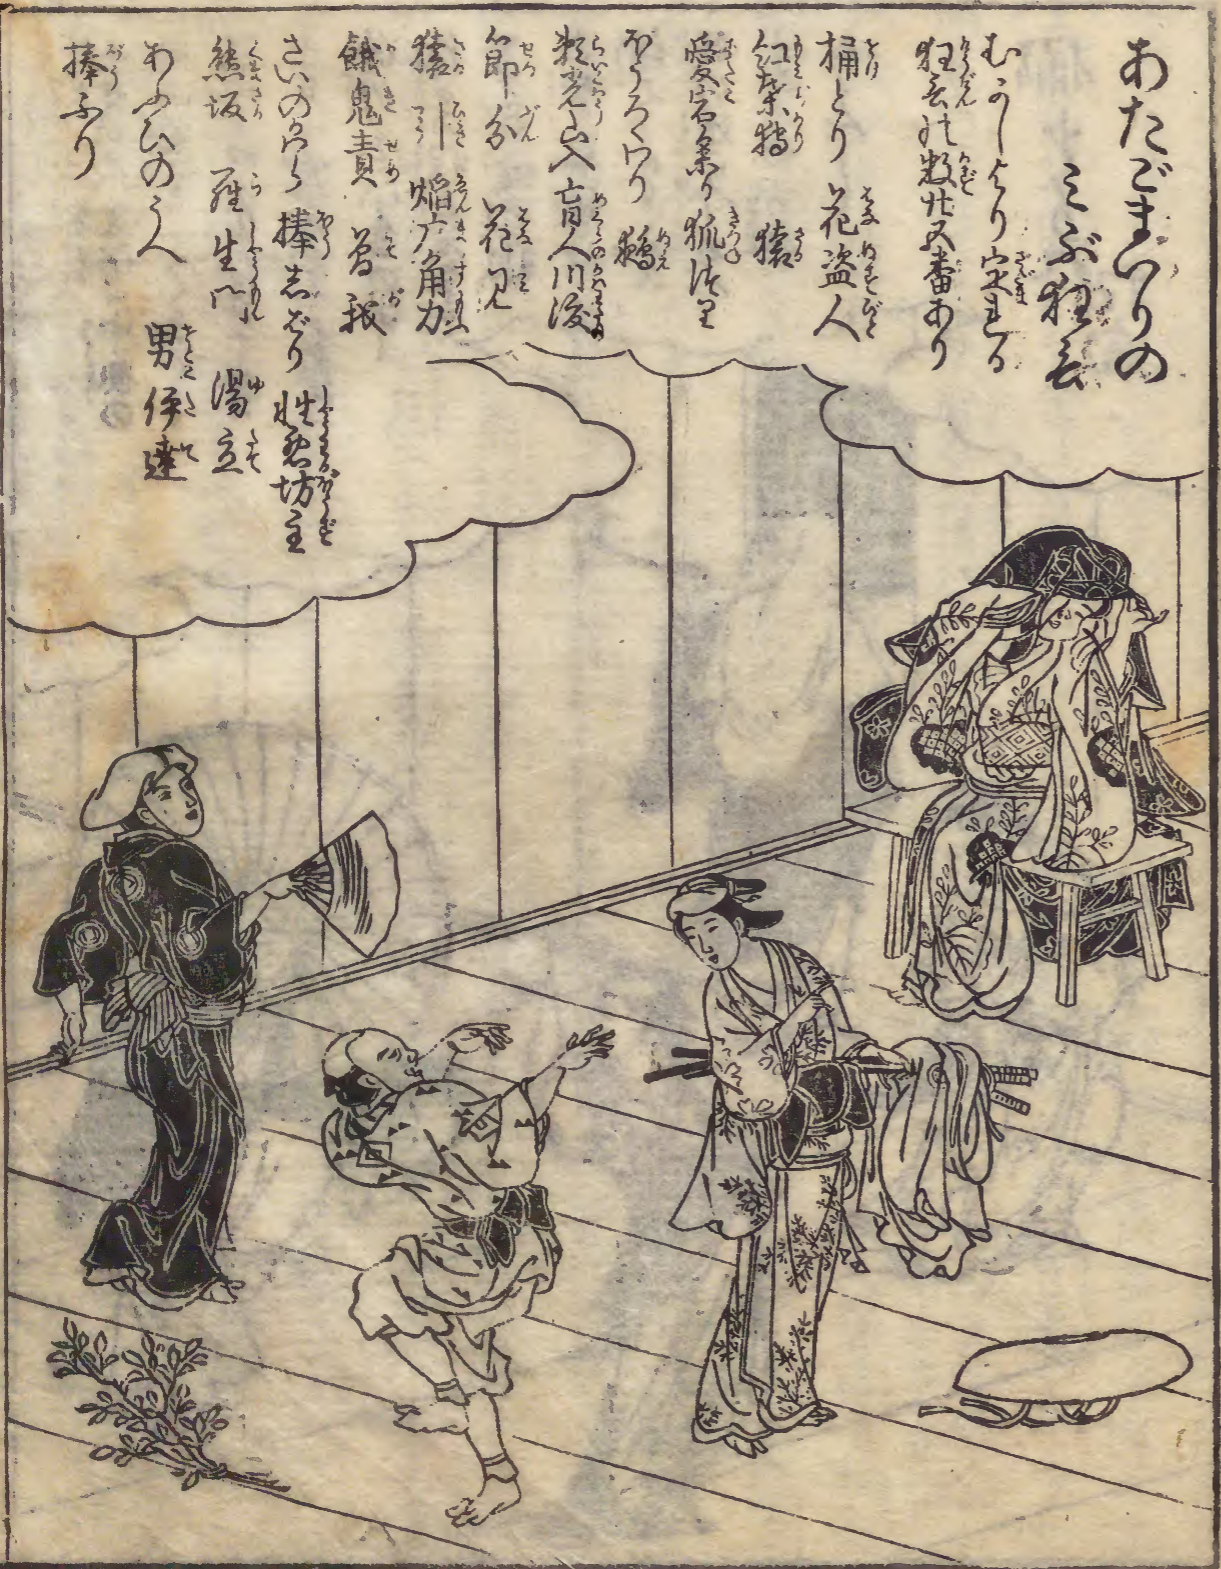 あたごまいりの
ミぶ狂言
むかしより定れる
狂言の数廿五番あり
桶とり 花盗人
紅葉狩 猿
愛宕参り
ほうろくわり 鵺
頼光山入 盲人川渡
節分 花見
猿引 焔广角力
餓鬼責 曽我
さいのかハら 棒志ばり 性悪坊主
熊坂 羅生門 湯立
あふひのうへ 男伊達
棒ふり